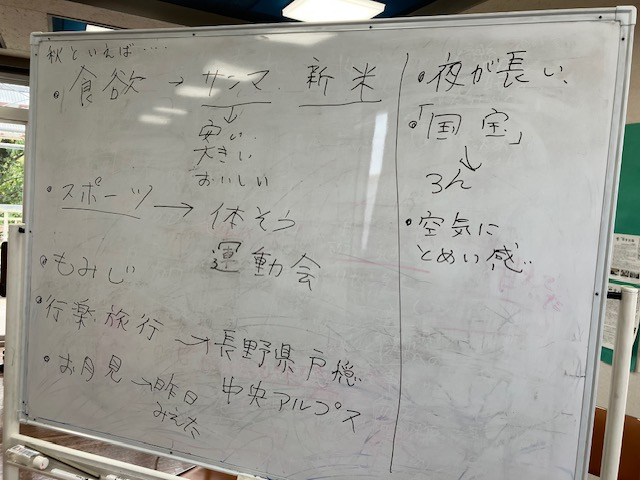 秋といえば‥‥
・食欲 → サンマ. 新米
↓
安い
大きい
おいしい
・スポーツ → 体そう
運動会
・もみじ
・行楽旅行 → 長野県戸隠
中央アルプス
・お月見 → 昨日
みえた
・夜が長い、
・「国宝」
↓
3人
・空気に
とめい感